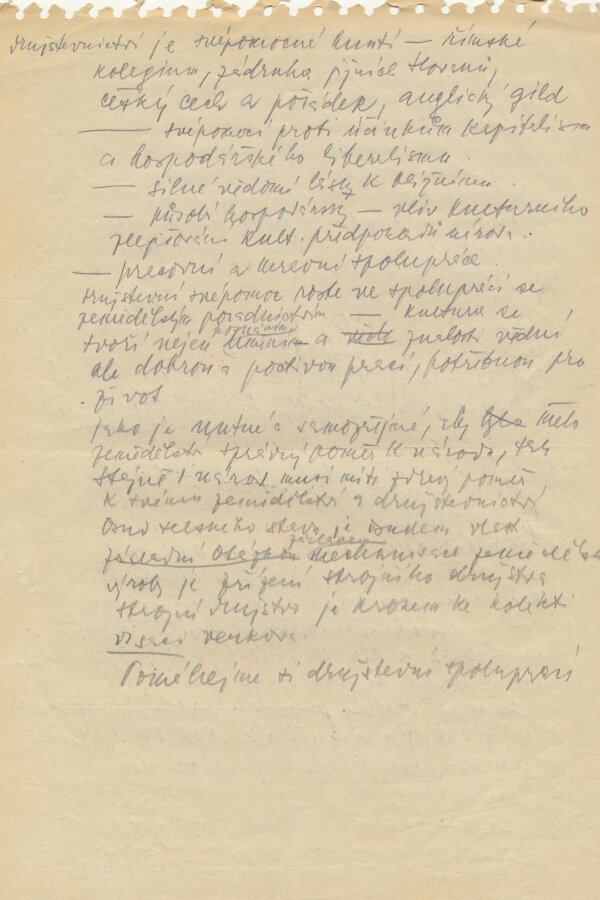 družstevnictví je svépomocné hnutí — římské
kolegium, zádruha jižních Slovanů,
český cech a pořádek, anglický gild
— svépomocí proti účinkům kapitalismu
a hospodářského liberalismu.
— silné vědomí lásky k bližnímu.
— působí hospodársky — vliv kulturního
zlepšování kult. předpokladů národa.
— pracovní a mravní spolupráce.
družstevní svépomoc roste ve spolupráci se
zemědělským poradnictvím. — kultura se
tvoří nejen a znalostí vědní
ale dobrou a poctivou prací, potřebnou pro
život
jako je nutné a samozřejmé, aby mělo
zemědělství správný poměr k národu, tak
stejně i národ musí míti zdravý poměr
k svému zemědělství a družstevnictví
Osud selského stavu je osudem vlasti
základní mechanisace zemědělské
výroby je zřízení strojního družstva
strojní družstvo je krokem ke kolekti
visaci venkova.
Pomáhejme si družstevní spoluprací